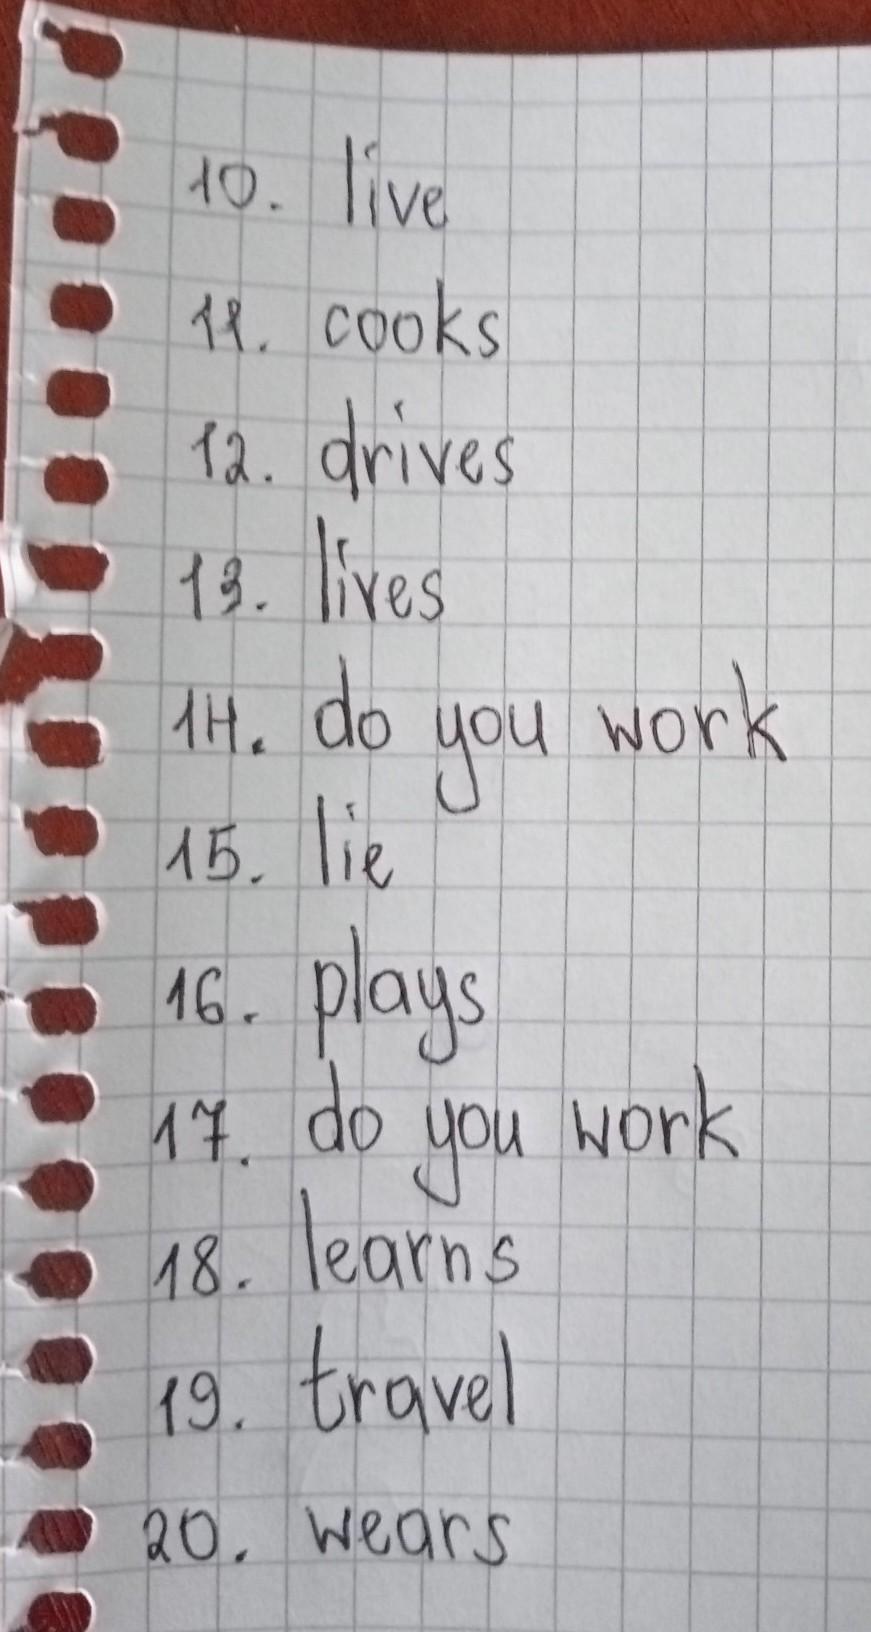 10. live
11. cooks
12. drives
13. lives
14. do you work
15. lie
16. plays
17. do you work
18. learns
19. travel
20. wears